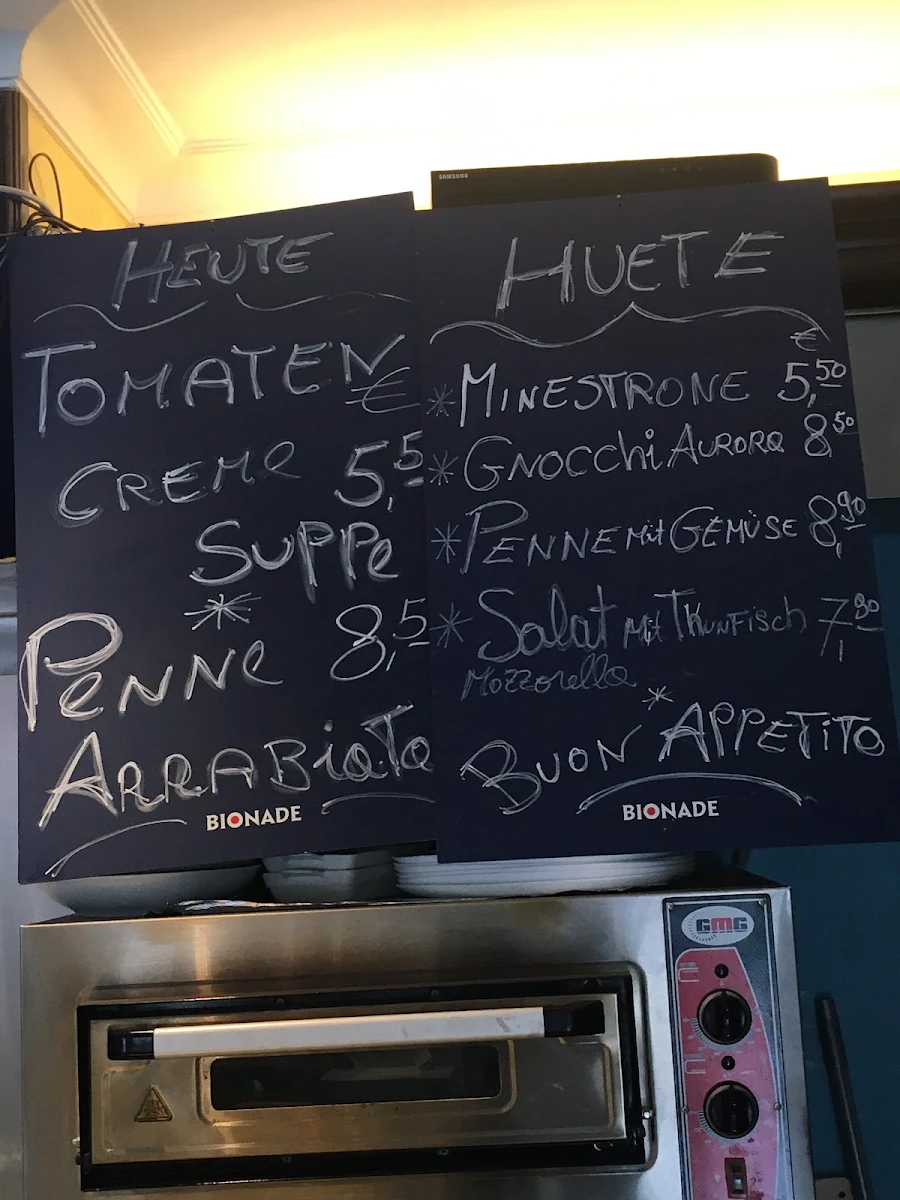 SAMSUNG
HEUTE
TOMATEN
€
CREME 5,5
SUPPE
*
PENNE 8,5
ARRABIATA
BIONADE
HUETE
€
* MINESTRONE 5,50
* GNOCCHI AURORA 8,50
* PENNE mit GEMÜSE 8,90
* Salat mit THUNFISCH 7,90
Mozzarella
*
BUON APPETITO
BIONADE
GMG